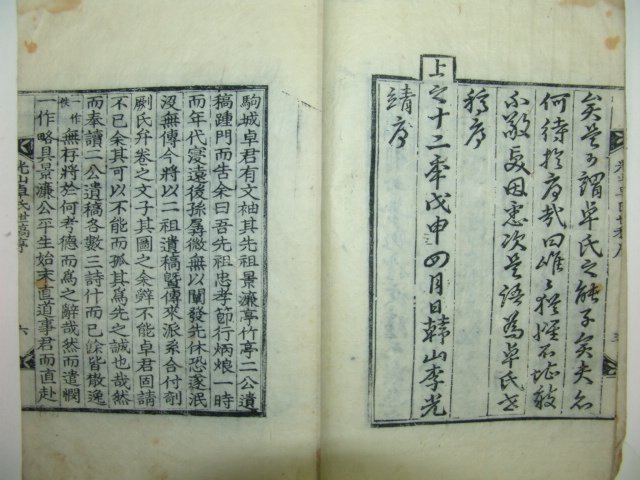 矣是可謂卓氏之能子矣夫忘
何待於序哉曰唯唯猶擢不地敢
不敬受因悉次是語為卓氏世
稿序
上之十二季戊申四月日韓山李光
靖序
駒城卓君有文袖其先祖景濂亭竹亭二公遺
稿踵門而告余曰吾先祖忠孝節行炳烺一時
而年代寖遠後孫孱微無以闡發先休恐遂泯
沒無傳今將以二祖遺稿曁傳來派系合付剞
劂氏弁卷之文子其圖之余辭不能卓君固請
不已余其可以不能而孤其爲先之誠也哉然
而奉讀二公遺稿各數三詩什而已餘皆散逸
一作佚無存將於何考德而爲之辭哉然而遺憫
一作略具景濂公平生始末直道事君而直赴
光山卓氏世稿序
六